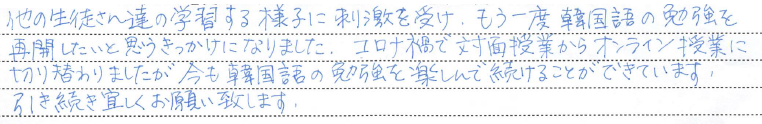 他の生徒さん達の学習する様子に刺激を受け、もう一度韓国語の勉強を
再開したいと思うきっかけになりました。コロナ禍で対面授業からオンライン授業に
切り替わりましたが今も韓国語の勉強を楽しんで続けることができています。
引き続き宜しくお願い致します。